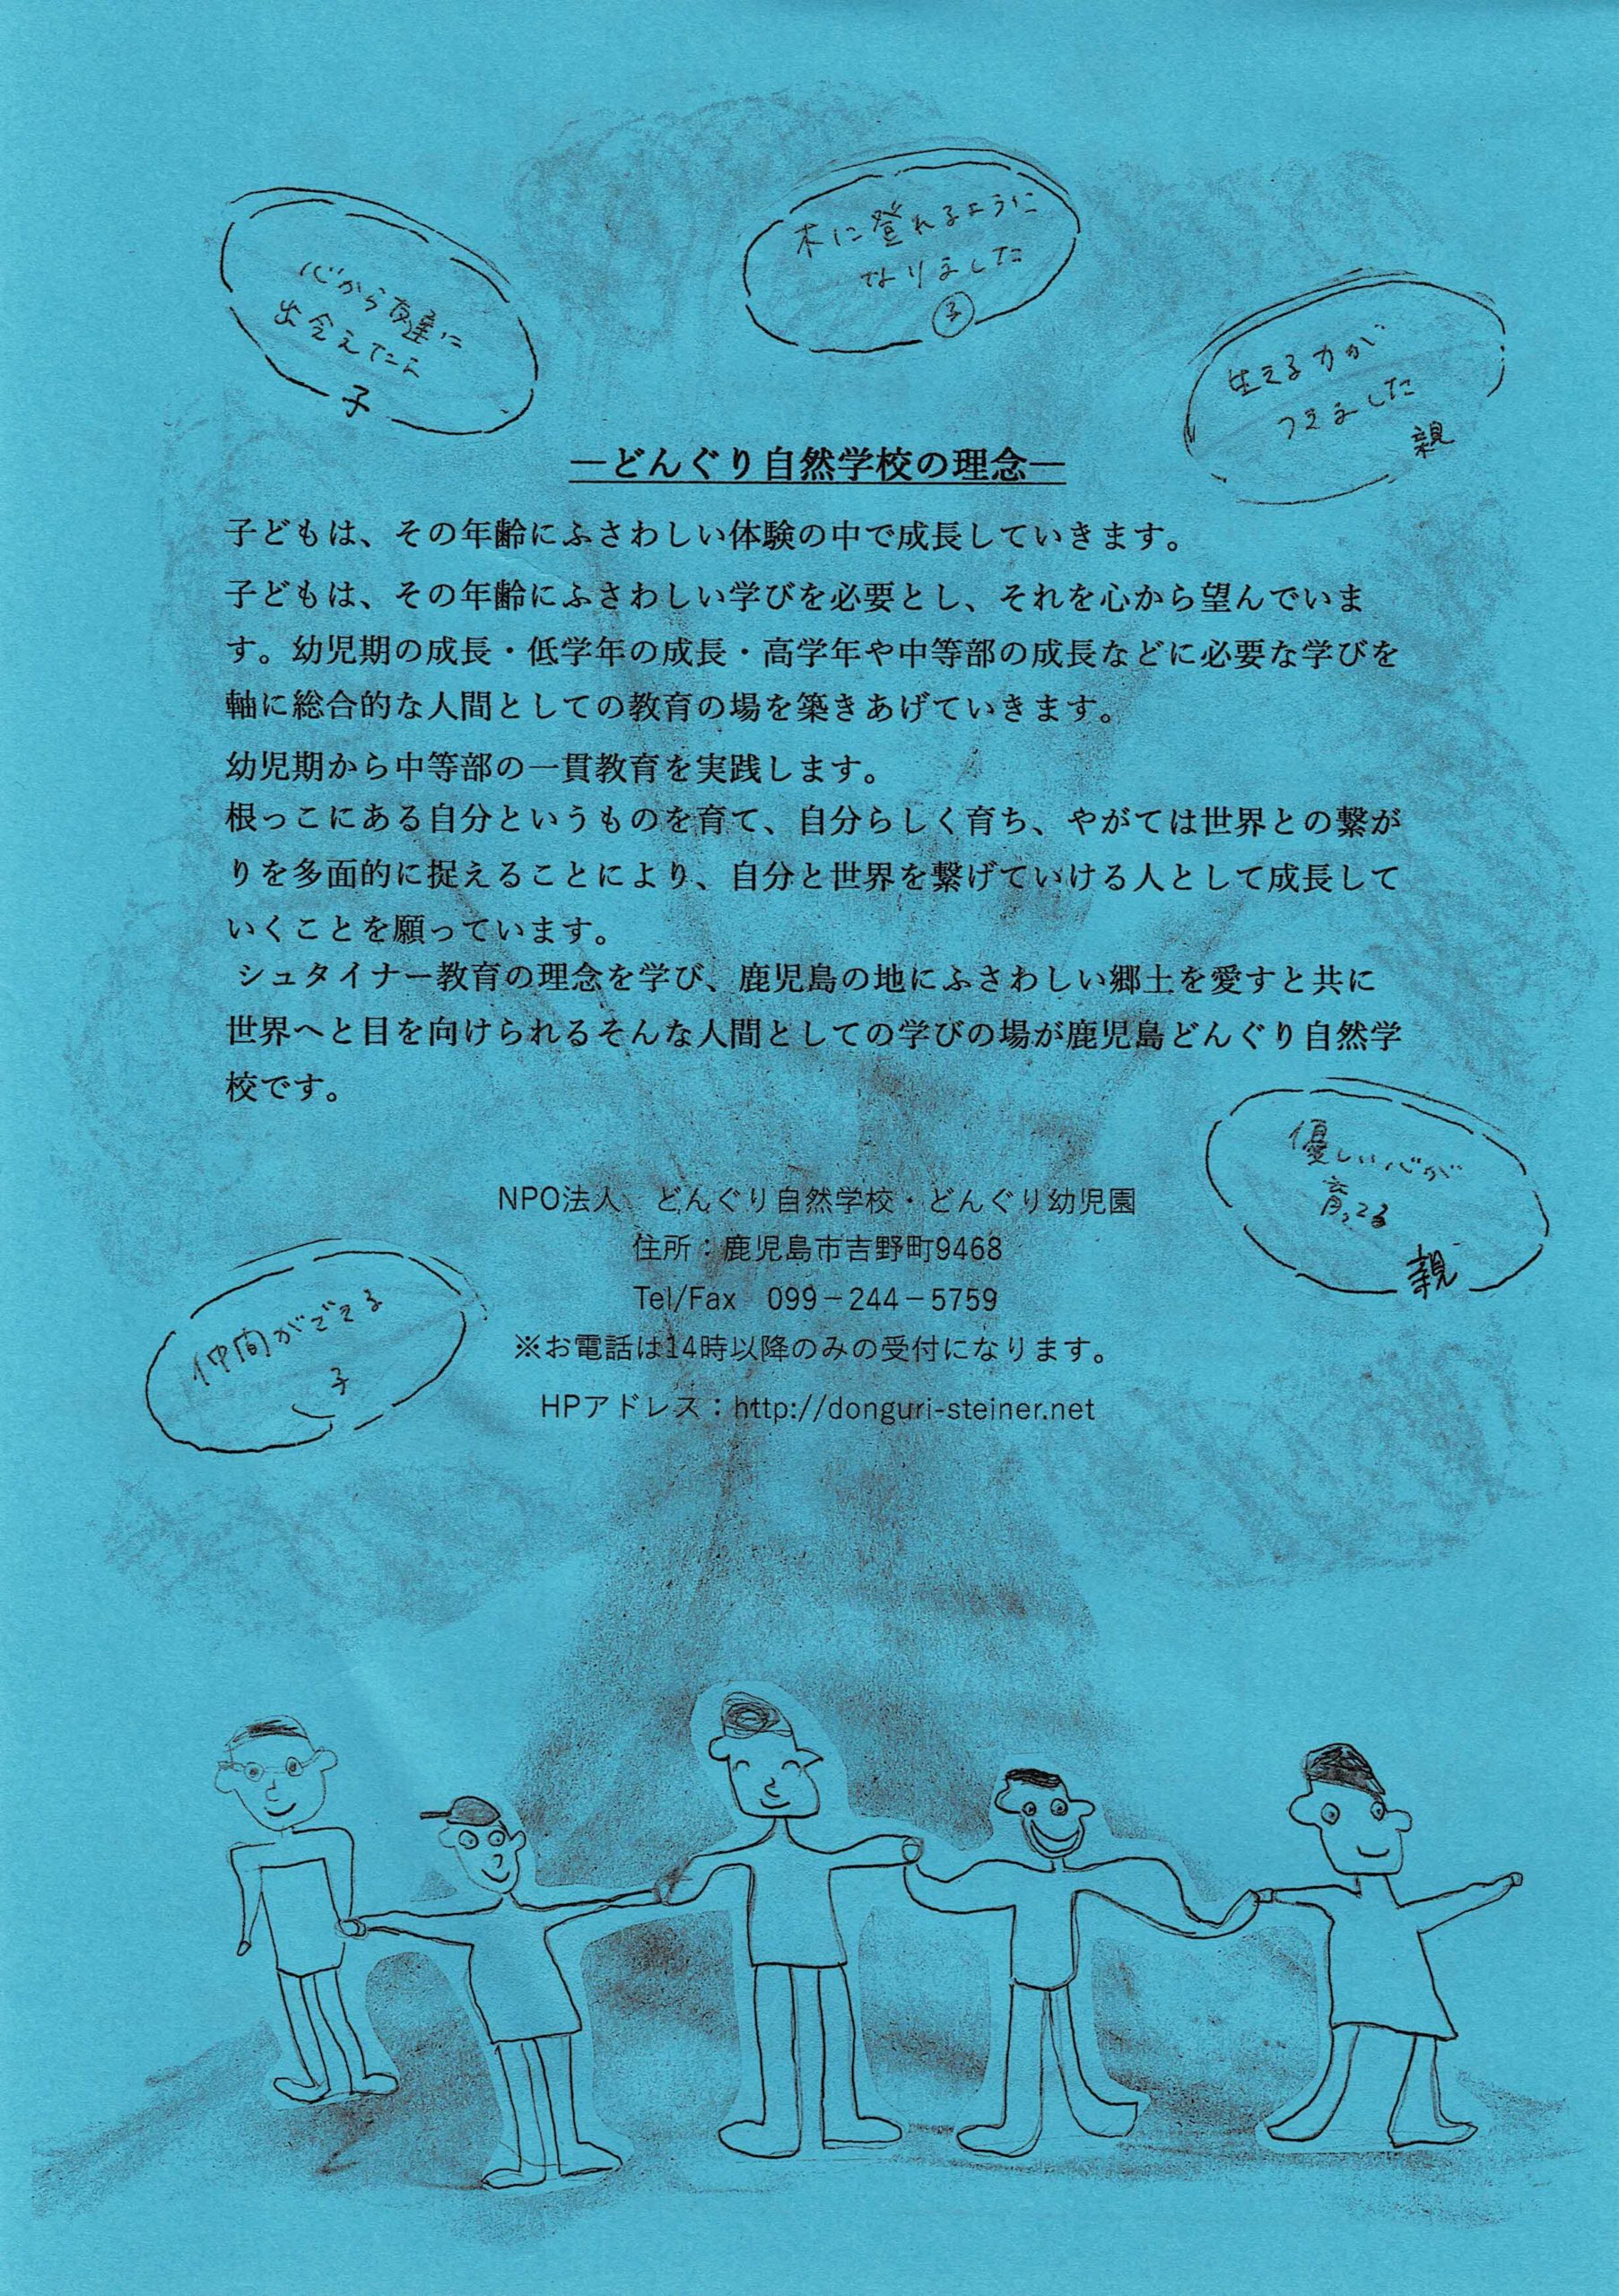 木に登れるように
なりました
子
心から友達に
出会えたよ
子
生きる力が
つきました
親
―どんぐり自然学校の理念―
子どもは、その年齢にふさわしい体験の中で成長していきます。
子どもは、その年齢にふさわしい学びを必要とし、それを心から望んでいま
す。幼児期の成長・低学年の成長・高学年や中等部の成長などに必要な学びを
軸に総合的な人間としての教育の場を築きあげていきます。
幼児期から中等部の一貫教育を実践します。
根っこにある自分というものを育て、自分らしく育ち、やがては世界との繋が
りを多面的に捉えることにより、自分と世界を繋げていける人として成長して
いくことを願っています。
シュタイナー教育の理念を学び、鹿児島の地にふさわしい郷土を愛すと共に
世界へと目を向けられるそんな人間としての学びの場が鹿児島どんぐり自然学
校です。
優しい心が
育ってる
親
NPO法人　どんぐり自然学校・どんぐり幼児園
住所：鹿児島市吉野町9468
Tel/Fax　099－244－5759
※お電話は14時以降のみの受付になります。
HPアドレス：http://donguri-steiner.net
仲間ができる
子